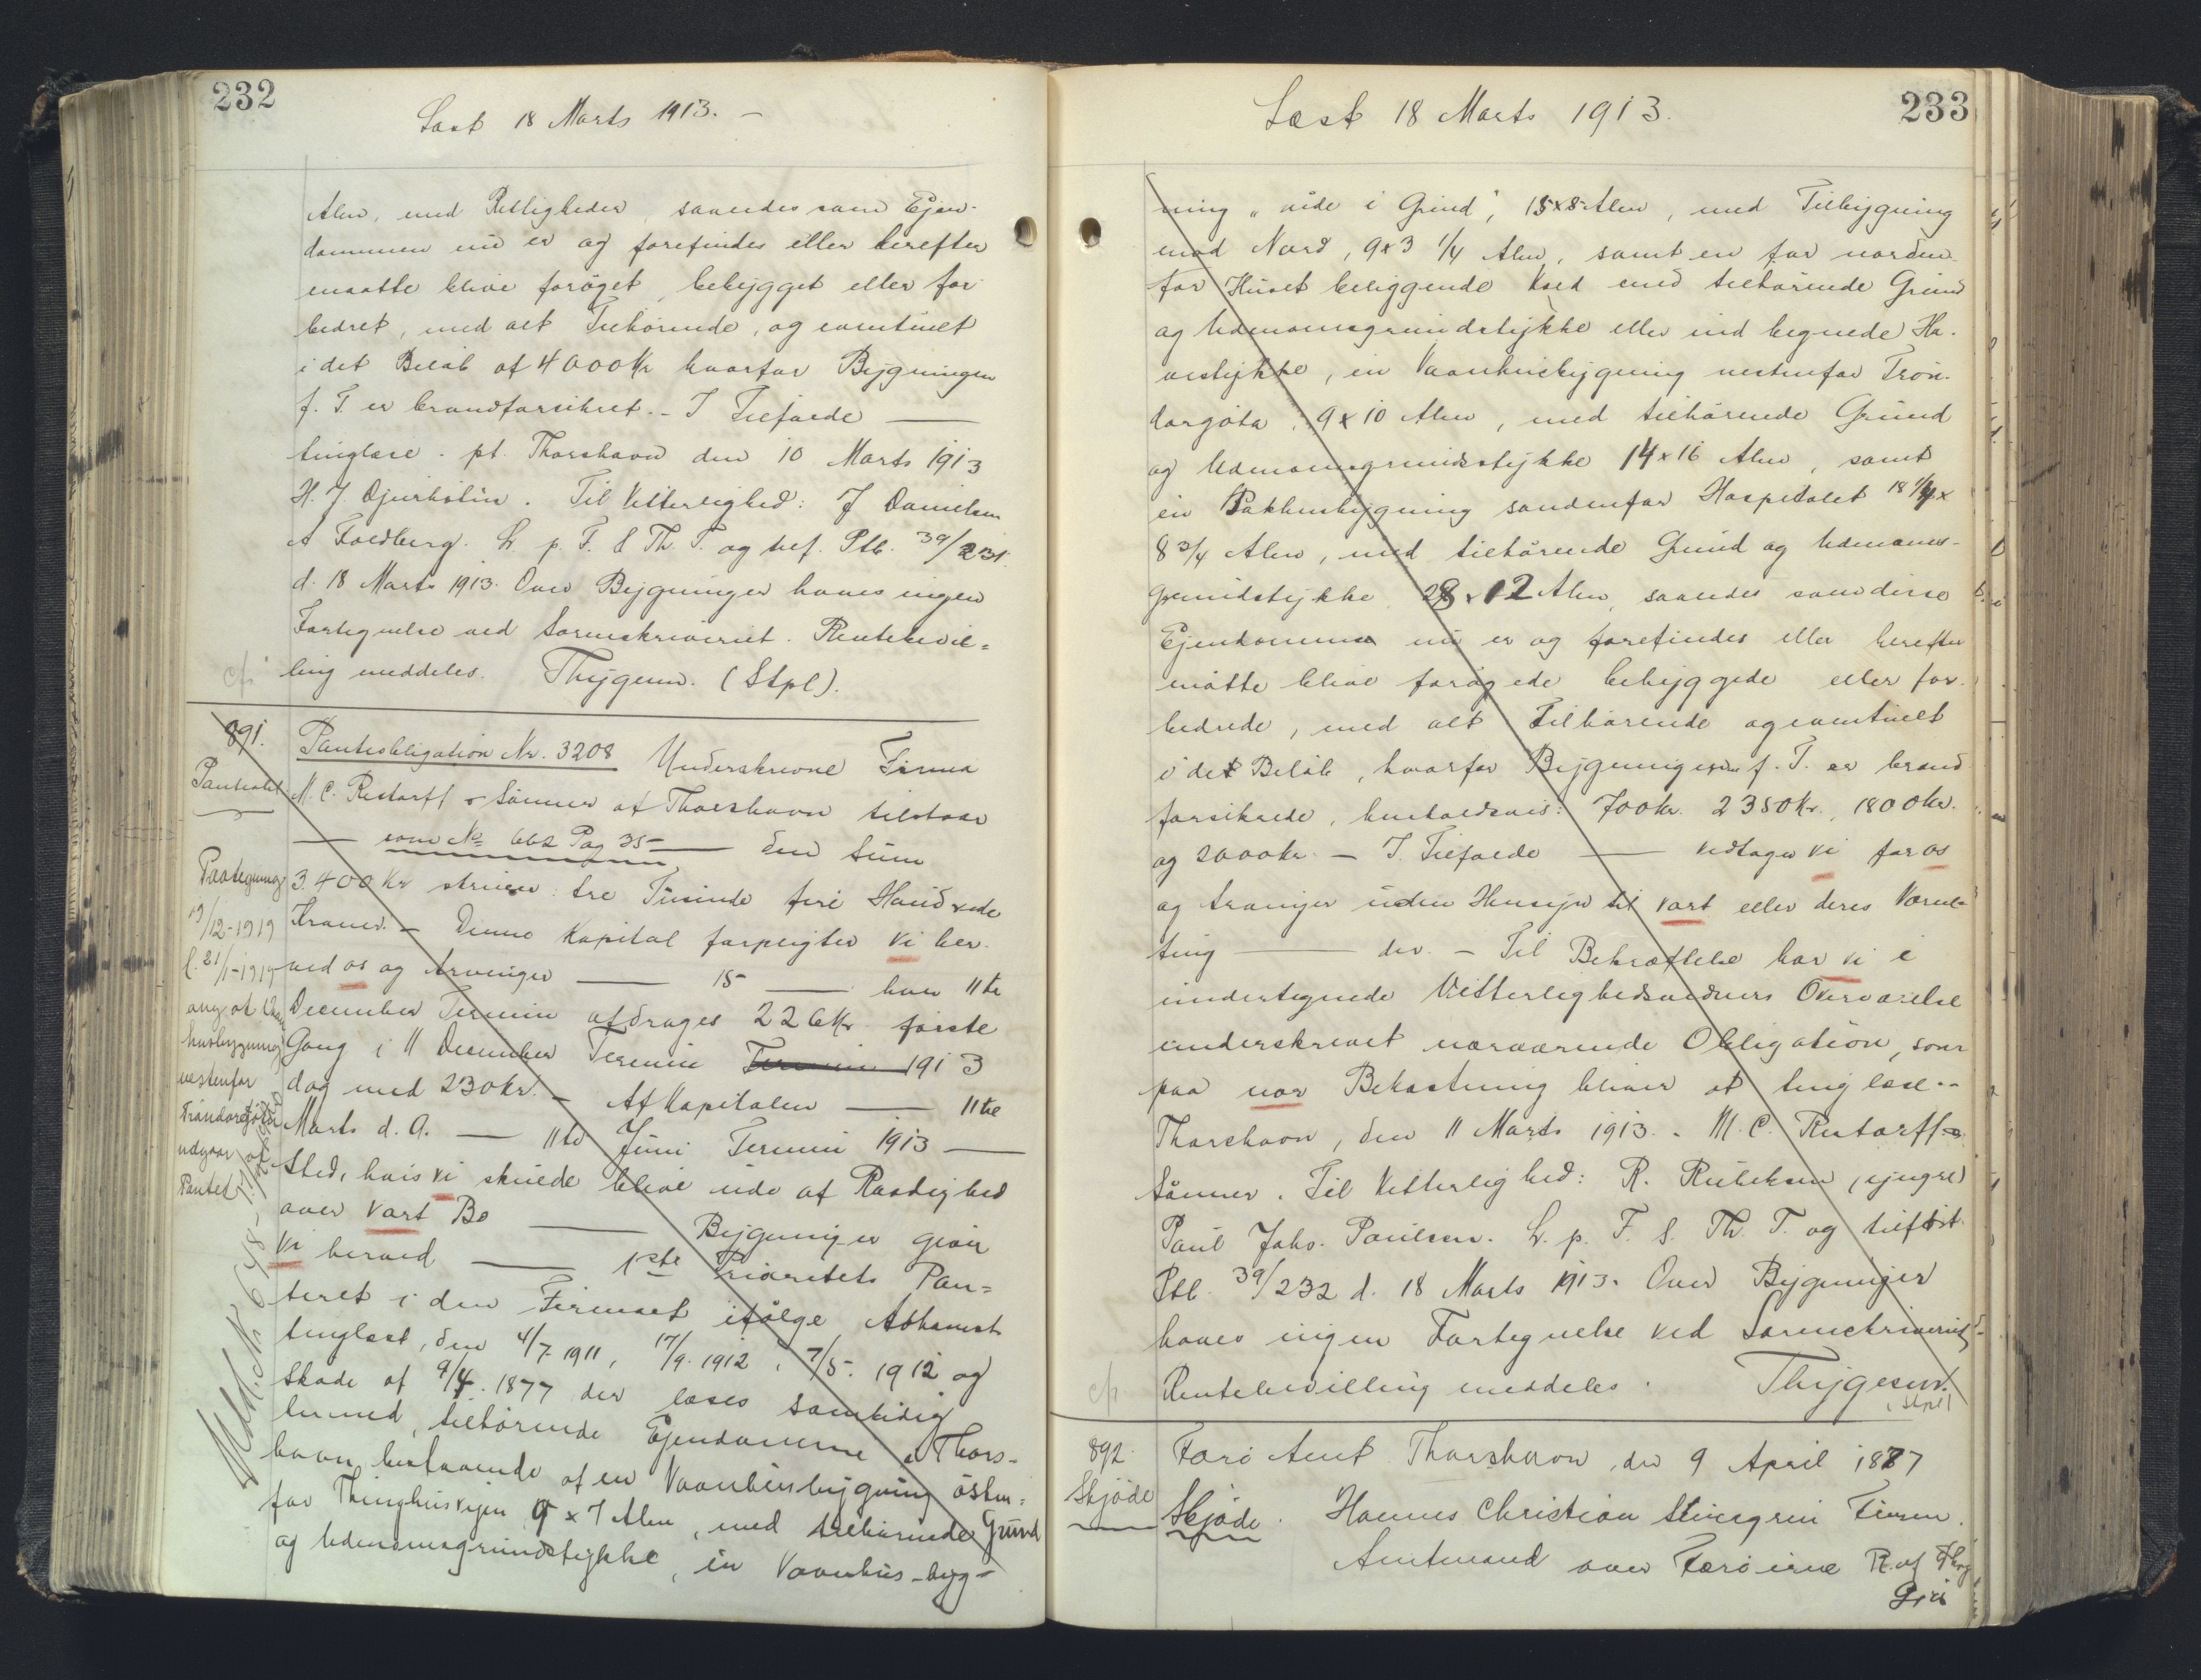 232
Læst 18 Marts 1913. –
Alen, med Rettigheder, saaledes som Ejen-
dommen nu er og forefindes eller herefter
maatte blive forøget, bebygget eller for-
bedret, med alt Tilhørende, og eventuelt
i det Beløb af 4000 Kr hvorfor Bygningen
f. T. er brandforsikret. – I Tilfælde —
tinglæse. pt. Thorshavn den 10 Marts 1913
H. J. Djurhuus. Til Vitterlighed: J Danielsen
A Foldberg. L. p. F. S Th. T. og tilf. Ptb. 39/231.
d. 18 Marts 1913. Over Bygninger haves ingen
Fortegnelse ved Sorenskriveriet. Rentebevil=
cfr. ling meddeles. Thygesen. (Stpl).
891. Pantobligation Nr. 3208 Underskrevne Firma
Panteobl. M. C. Restorff & Sönner af Thorshavn tilstaar
— som No 662 Pag 35 — den Sum
3.400 Kr skriver tre Tusinde fire Hundrede
Kroner. – Denne Kapital forpligter vi her-
ved os og Arvinger — 15 — hver 11te
December Termin afdrages 226 Kr. förste
Gang i 11 December Termin Termin 1913
dog med 230 kr. – Af Kapitalen — 11te
Marts d. A. — 11te Juni Termin 1913 —
Sted, hvis vi skulde blive ude af Raadighed
over vort Bo — Bygninger giver
vi herved — 1ste Prioritets Pan=
teret i den Firmaet ifølge Adkomst
tinglæst, den 4/7 1911, 17/9. 1912, 7/5. 1912 og
Skøde af 9/4. 1877 der læses samtidig
hermed, tilhørende Ejendomme i Thors-
havn bestaaende af en Vaanhusbygning østen=
for Thinghusvejen 9 x 7 Alen, med tilhørende Grund
og Udenomsgrundstykke, en Vaanhus-byg-
Paategning
19/12-1919
l. 21/1-1919
ang. at Vaan
husbygning
vestenfor
Tröndargöta
udgaar af
Pantet
233
Læst 18 Marts 1913.
ning "niðe i Grind", 15x8 Alen, med Tilbygning
mod Nord, 9x3 1/4 Alen, samt en for norden-
for Huset beliggende Kold med tilhørende Grund
og Udenomsgrundstykke eller ind hegnede Ha-
vestykke, en Vaanhusbygning vestenfor Trön-
dargöta, 9 x 10 Alen, med tilhørende Grund
og Udenomsgrundstykke 14 x 16 Alen, samt
en Pakhusbygning söndenfor Hospitalet 18 1/4 x
8 3/4 Alen, med tilhørende Grund og Udenoms-
grundstykke 28 x 12 Alen, saaledes som disse
Ejendomme nu er og forefindes eller herefter
måtte blive forøgede bebyggede eller for-
bedrede, med alt Tilhørende og eventuelt
i det Beløb, hvorfor Bygningerne f. T. er brand-
forsikrede, henholdsvis: 700 kr. 2350 Kr., 1800 kr.
og 2000 kr. – I Tilfælde — vedtager vi for os
og Arvinger uden Hensyn til vort eller deres Værne-
ting — der. – Til Bekræftelse har vi i
undertegnede Vitterlighedsvidners Overværelse
underskrevet nærværende Obligation, som
paa vor Bekostning bliver at tinglæse. –
Thorshavn, den 11 Marts 1913. M. C. Restorff &
Sönner. Til Vitterlighed: R. Rubeksen (yngre)
Paul Johs. Poulsen. L. p. F. S. Th. T. og tilført
Ptb. 39/232 d. 18 Marts 1913. Over Bygninger
haves ingen Fortegnelse ved Sorenskriveriet.
cfr. Rentebevilling meddeles. Thygesen.
(Stpl)
892. Færö Amt Thorshavn, den 9 April 1877
Skjøde Skjøde. Hannes Christian Steingrim Finsen.
Amtmand over Færöerne R. af